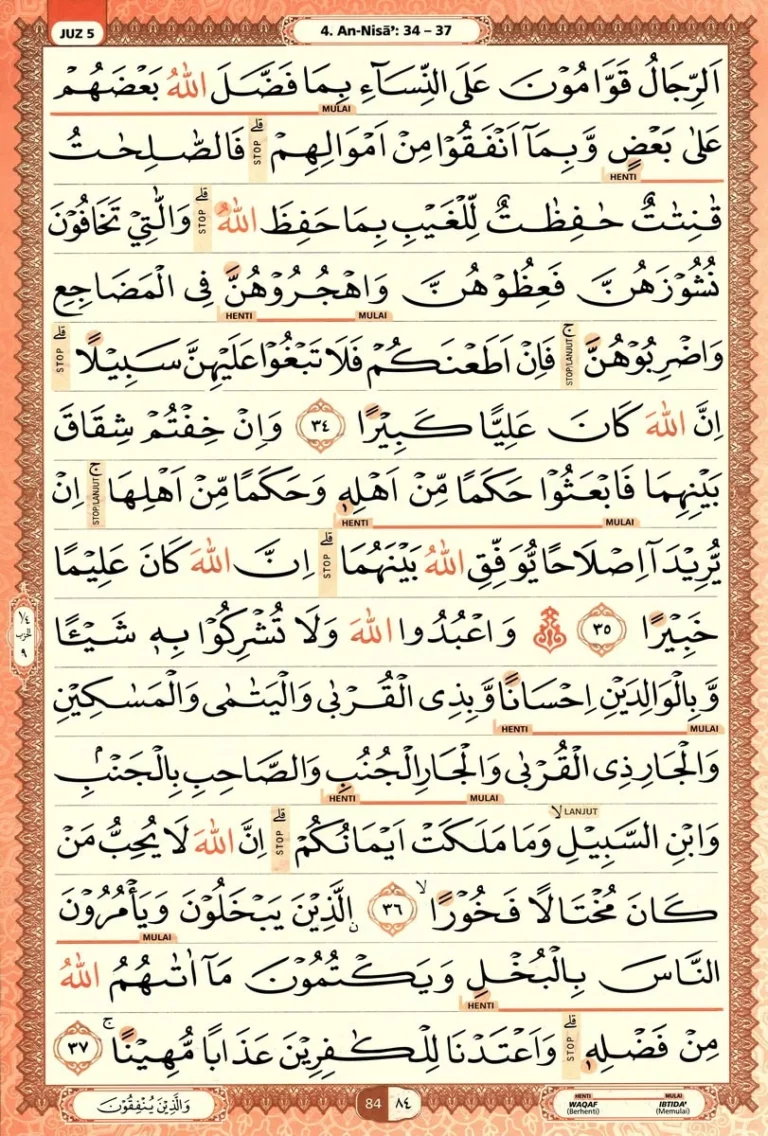 JUZ 5
4. An-Nisā’: 34 – 37
اَلرِّجَالُ قَوَّامُوْنَ عَلَى النِّسَاۤءِ بِمَا فَضَّلَ اللّٰهُ بَعْضَهُمْ
MULAI
عَلٰى بَعْضٍ وَّبِمَآ اَنْفَقُوْا مِنْ اَمْوَالِهِمْ ۗ فَالصّٰلِحٰتُ
HENTI STOP
قٰنِتٰتٌ حٰفِظٰتٌ لِّلْغَيْبِ بِمَا حَفِظَ اللّٰهُ ۗ وَالّٰتِيْ تَخَافُوْنَ
STOP
نُشُوْزَهُنَّ فَعِظُوْهُنَّ وَاهْجُرُوْهُنَّ فِى الْمَضَاجِعِ
MULAI HENTI
وَاضْرِبُوْهُنَّ ۚ فَاِنْ اَطَعْنَكُمْ فَلَا تَبْغُوْا عَلَيْهِنَّ سَبِيْلًا ۗ
STOP/LANJUT STOP
اِنَّ اللّٰهَ كَانَ عَلِيًّا كَبِيْرًا ٣٤ وَاِنْ خِفْتُمْ شِقَاقَ
بَيْنِهِمَا فَابْعَثُوْا حَكَمًا مِّنْ اَهْلِهٖ وَحَكَمًا مِّنْ اَهْلِهَا ۚ اِنْ
MULAI HENTI STOP/LANJUT
يُّرِيْدَآ اِصْلَاحًا يُّوَفِّقِ اللّٰهُ بَيْنَهُمَا ۗ اِنَّ اللّٰهَ كَانَ عَلِيْمًا
STOP
خَبِيْرًا ٣٥ ۞ وَاعْبُدُوا اللّٰهَ وَلَا تُشْرِكُوْا بِهٖ شَيْـًٔا
وَّبِالْوَالِدَيْنِ اِحْسَانًا وَّبِذِى الْقُرْبٰى وَالْيَتٰمٰى وَالْمَسٰكِيْنِ
MULAI HENTI
وَالْجَارِ ذِى الْقُرْبٰى وَالْجَارِ الْجُنُبِ وَالصَّاحِبِ بِالْجَنْۢبِ
MULAI HENTI
وَابْنِ السَّبِيْلِ ۙ وَمَا مَلَكَتْ اَيْمَانُكُمْ ۗ اِنَّ اللّٰهَ لَا يُحِبُّ مَنْ
LANJUT STOP
كَانَ مُخْتَالًا فَخُوْرًا ۙ ٣٦ ۨالَّذِيْنَ يَبْخَلُوْنَ وَيَأْمُرُوْنَ
MULAI
النَّاسَ بِالْبُخْلِ وَيَكْتُمُوْنَ مَآ اٰتٰىهُمُ اللّٰهُ
HENTI
مِنْ فَضْلِهٖ ۗ وَاَعْتَدْنَا لِلْكٰفِرِيْنَ عَذَابًا مُّهِيْنًا ۚ ٣٧
STOP
١/٤ حزب ٩
وَالَّذِيْنَ يُنْفِقُوْنَ
84 ٨٤
HENTI MULAI
WAQAF IBTIDA'
(Berhenti) (Memulai)